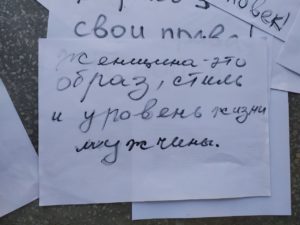 свои права!
овек!
женщина - это
образ, стиль
и уровень жизни
мужчины.